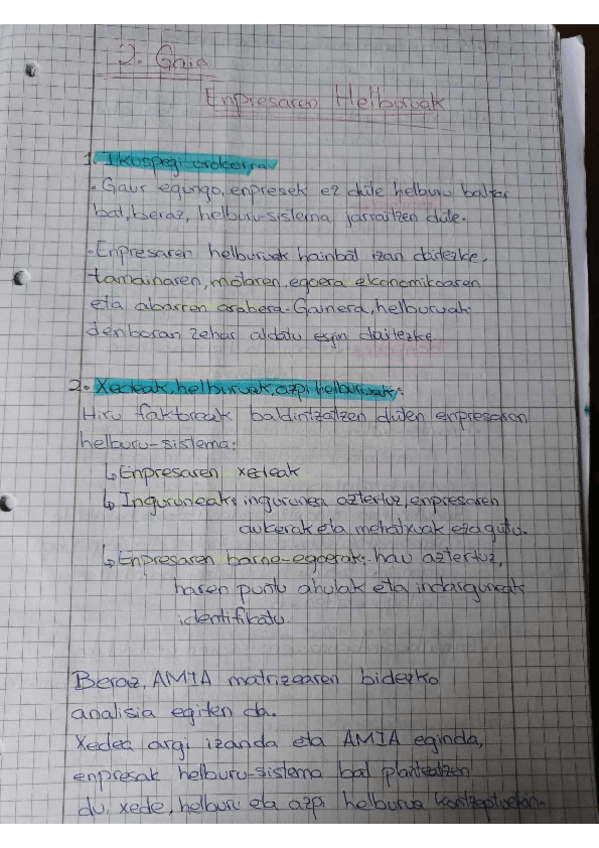 2. Gaia
Enpresaren Helburuak
1. Ikuspegi orokorra
- Gaur egungo, enpresek ez dute helburu bakar
bat, beraz, helburu-sistema jarraitzen dute.
- Enpresaren helburuak hainbat izan daitezke,
tamainaren, motaren, egoera ekonomikoaren
eta abarren arabera. Gainera, helburuak
denboran zehar aldatu egin daitezke
2. Xedeak, helburuak, azpi helburuak:
Hiru faktoreak baldintzatzen duten enpresaren
helburu-sistema:
↳ Enpresaren xedeak
↳ Inguruneak: ingurunea aztertuz, enpresaren
aukerak eta mehatxuak ezagutu.
↳ Enpresaren barne-egoerak: hau aztertuz,
haren puntu ahulak eta indarguneak
identifikatu.
Beraz, AMIA matrizearen bidezko
analisia egiten da.
Xedea argi izanda eta AMIA eginda,
enpresak helburu-sistema bat planteatzen
du, xede, helburu eta azpi helburua kontzeptuekin.